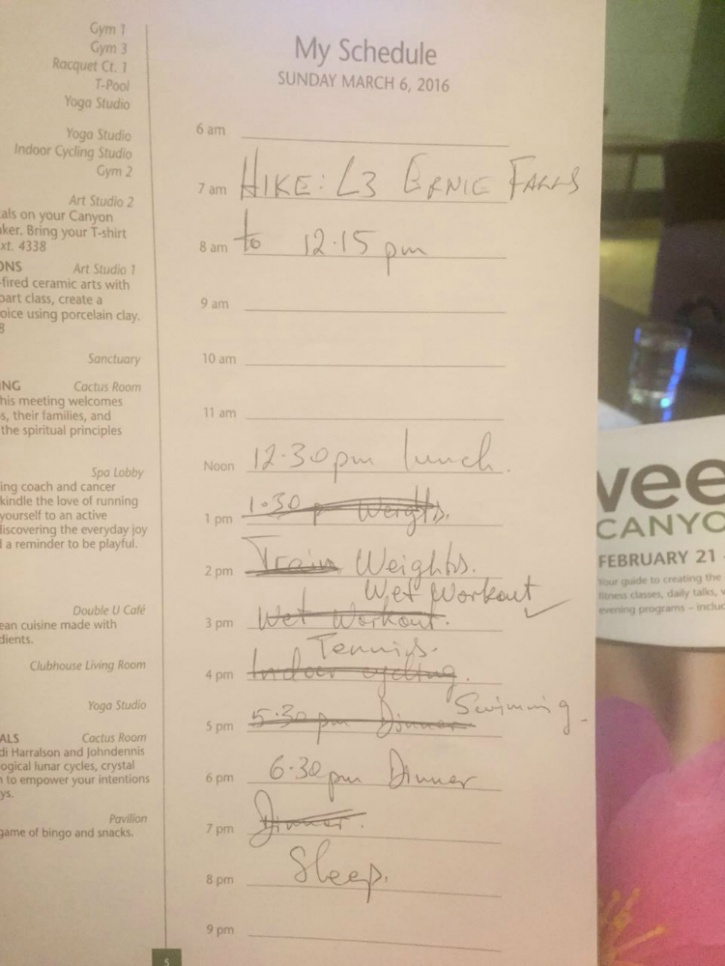 Gym 1
Gym 3
Racquet Ct. 1
T-Pool
Yoga Studio
Yoga Studio
Indoor Cycling Studio
Gym 2
Art Studio 2
als on your Canyon
ker. Bring your T-shirt
xt. 4338
ONS Art Studio 1
-fired ceramic arts with
part class, create a
oice using porcelain clay.
8
Sanctuary
NG Cactus Room
his meeting welcomes
s, their families, and
the spiritual principles
Spa Lobby
ing coach and cancer
kindle the love of running
yourself to an active
discovering the everyday joy
a reminder to be playful.
Double U Café
ean cuisine made with
dients.
Clubhouse Living Room
Yoga Studio
ALS Cactus Room
di Harralson and Johndennis
ogical lunar cycles, crystal
to empower your intentions
ys.
Pavilion
game of bingo and snacks.
5
My Schedule
SUNDAY MARCH 6, 2016
6 am
7 am HIKE: L3 ERNIE FALLS
8 am to 12.15 pm
9 am
10 am
11 am
Noon 12.30pm lunch.
1 pm 1.30 p Weights.
2 pm Train Weights.
Wet Workout
3 pm Wet Workout.
Tennis.
4 pm Indoor cycling.
5 pm 5.30 pm Dinner Swimming.
6 pm 6.30 pm Dinner
7 pm Dinner.
8 pm Sleep.
9 pm
vee
CANYO
FEBRUARY 21 -
Your guide to creating the
fitness classes, daily talks, w
evening programs – includ